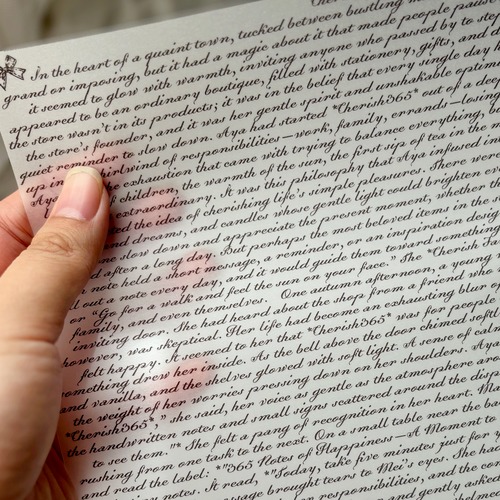 In the heart of a quaint town, tucked between bustling
grand or imposing, but it had a magic about it that made people pause
it seemed to glow with warmth, inviting anyone who passed by to
appeared to be an ordinary boutique, filled with stationery, gifts, and
the store wasn't in its products; it was in the belief that every single day
the store's founder, and it was her gentle spirit and unshakable
quiet reminder to slow down. Aya had started *Cherish365* out of a
up in whirlwind of responsibilities—work, family, errands—losing
the exhaustion that came with trying to balance everything,
Aya of children, the warmth of the sun, the first sip of tea in the
extraordinary. It was this philosophy that Aya infused
the idea of cherishing life's simple pleasures. There were
and dreams, and candles whose gentle light could brighten
slow down and appreciate the present moment, whether
after a long day. But perhaps the most beloved items in the
note held a short message, a reminder, or an inspiration
out a note every day, and it would guide them toward something
or "Go for a walk and feel the sun on your face." She *Cherish
family, and even themselves. One autumn afternoon, a young
inviting door. She had heard about the shop from a friend who
however, was skeptical. Her life had become an exhausting blur of
felt happy. It seemed to her that *Cherish365* was for people
something drew her inside. As the bell above the door chimed
and vanilla, and the shelves glowed with soft light. A sense of
the weight of her worries pressing down on her shoulders.
*Cherish365*," she said, her voice as gentle as the atmosphere
the handwritten notes and small signs scattered around the
to see them."* She felt a pang of recognition in her heart.
rushing from one task to the next. On a small table near the
and read the label: *"365 Notes of Happiness—A Moment to
notes. It read, *"Today, take five minutes just for
message brought tears to Mei's eyes. She